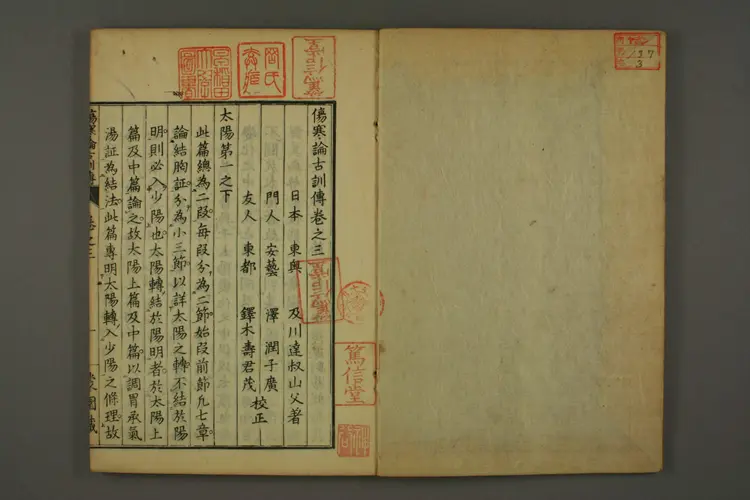 傷寒論古訓傳卷之三
日本 東奧 及川達叔山父著
門人 安藝 澤 潤子廣
友人 東都 鐸木壽君茂 校正
太陽第一之下
此篇總為二段每段分為二節始段前節九七章
論結胸証分為小三節以詳太陽之轉不結於陽
明則必入少陽也太陽轉結於陽明者於太陽上
篇及中篇論之故太陽上篇及中篇以調胃承氣
湯証為結法此篇專明太陽轉入少陽之條理故
傷寒論古訓傳 卷之三
一
篤信堂
137
3